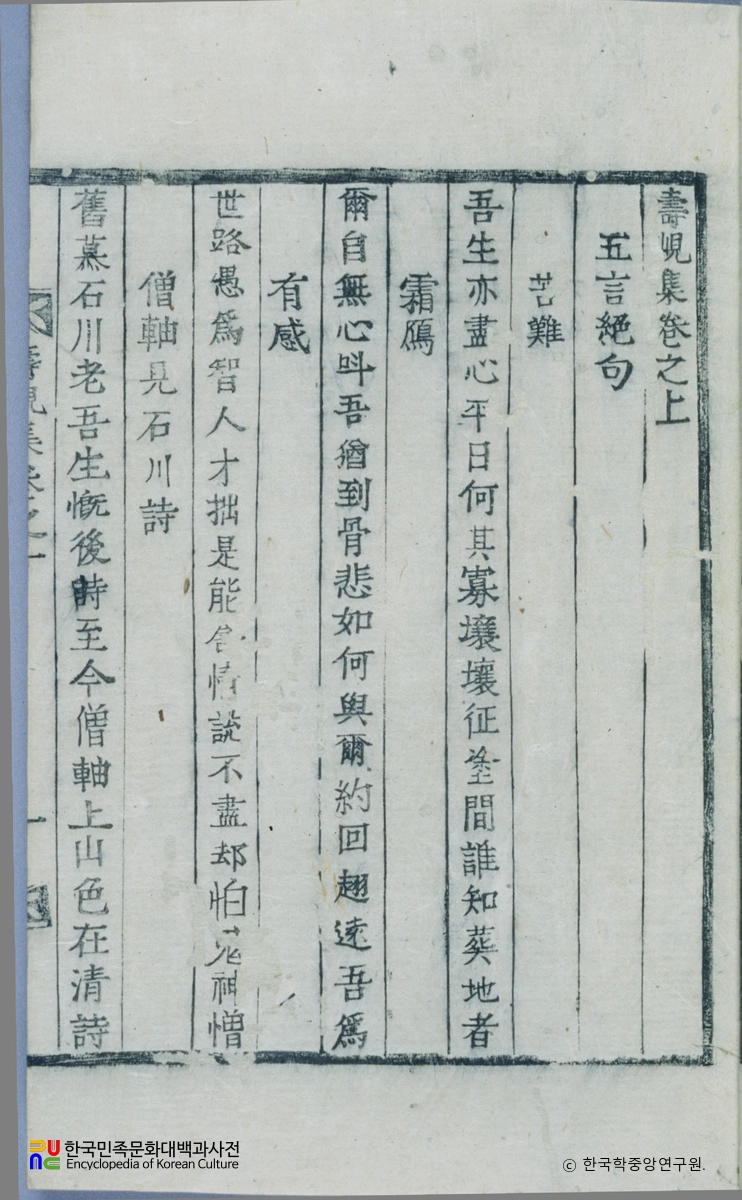 壽峴集卷之上
五言絕句
苦難
吾生亦盡心平日何其寡壤壤征塗間誰知葬地者
霜鴈
爾自無心呌吾猶到骨悲如何與爾約回翅遠吾爲
有感
世路愚爲智人才拙是能含情說不盡却怕鬼神憎
僧軸見石川詩
舊慕石川老吾生慨後時至今僧軸上山色在清詩
壽峴集卷之上
一
한국민족문화대백과사전
Encyclopedia of Korean Culture
ⓒ 한국학중앙연구원.